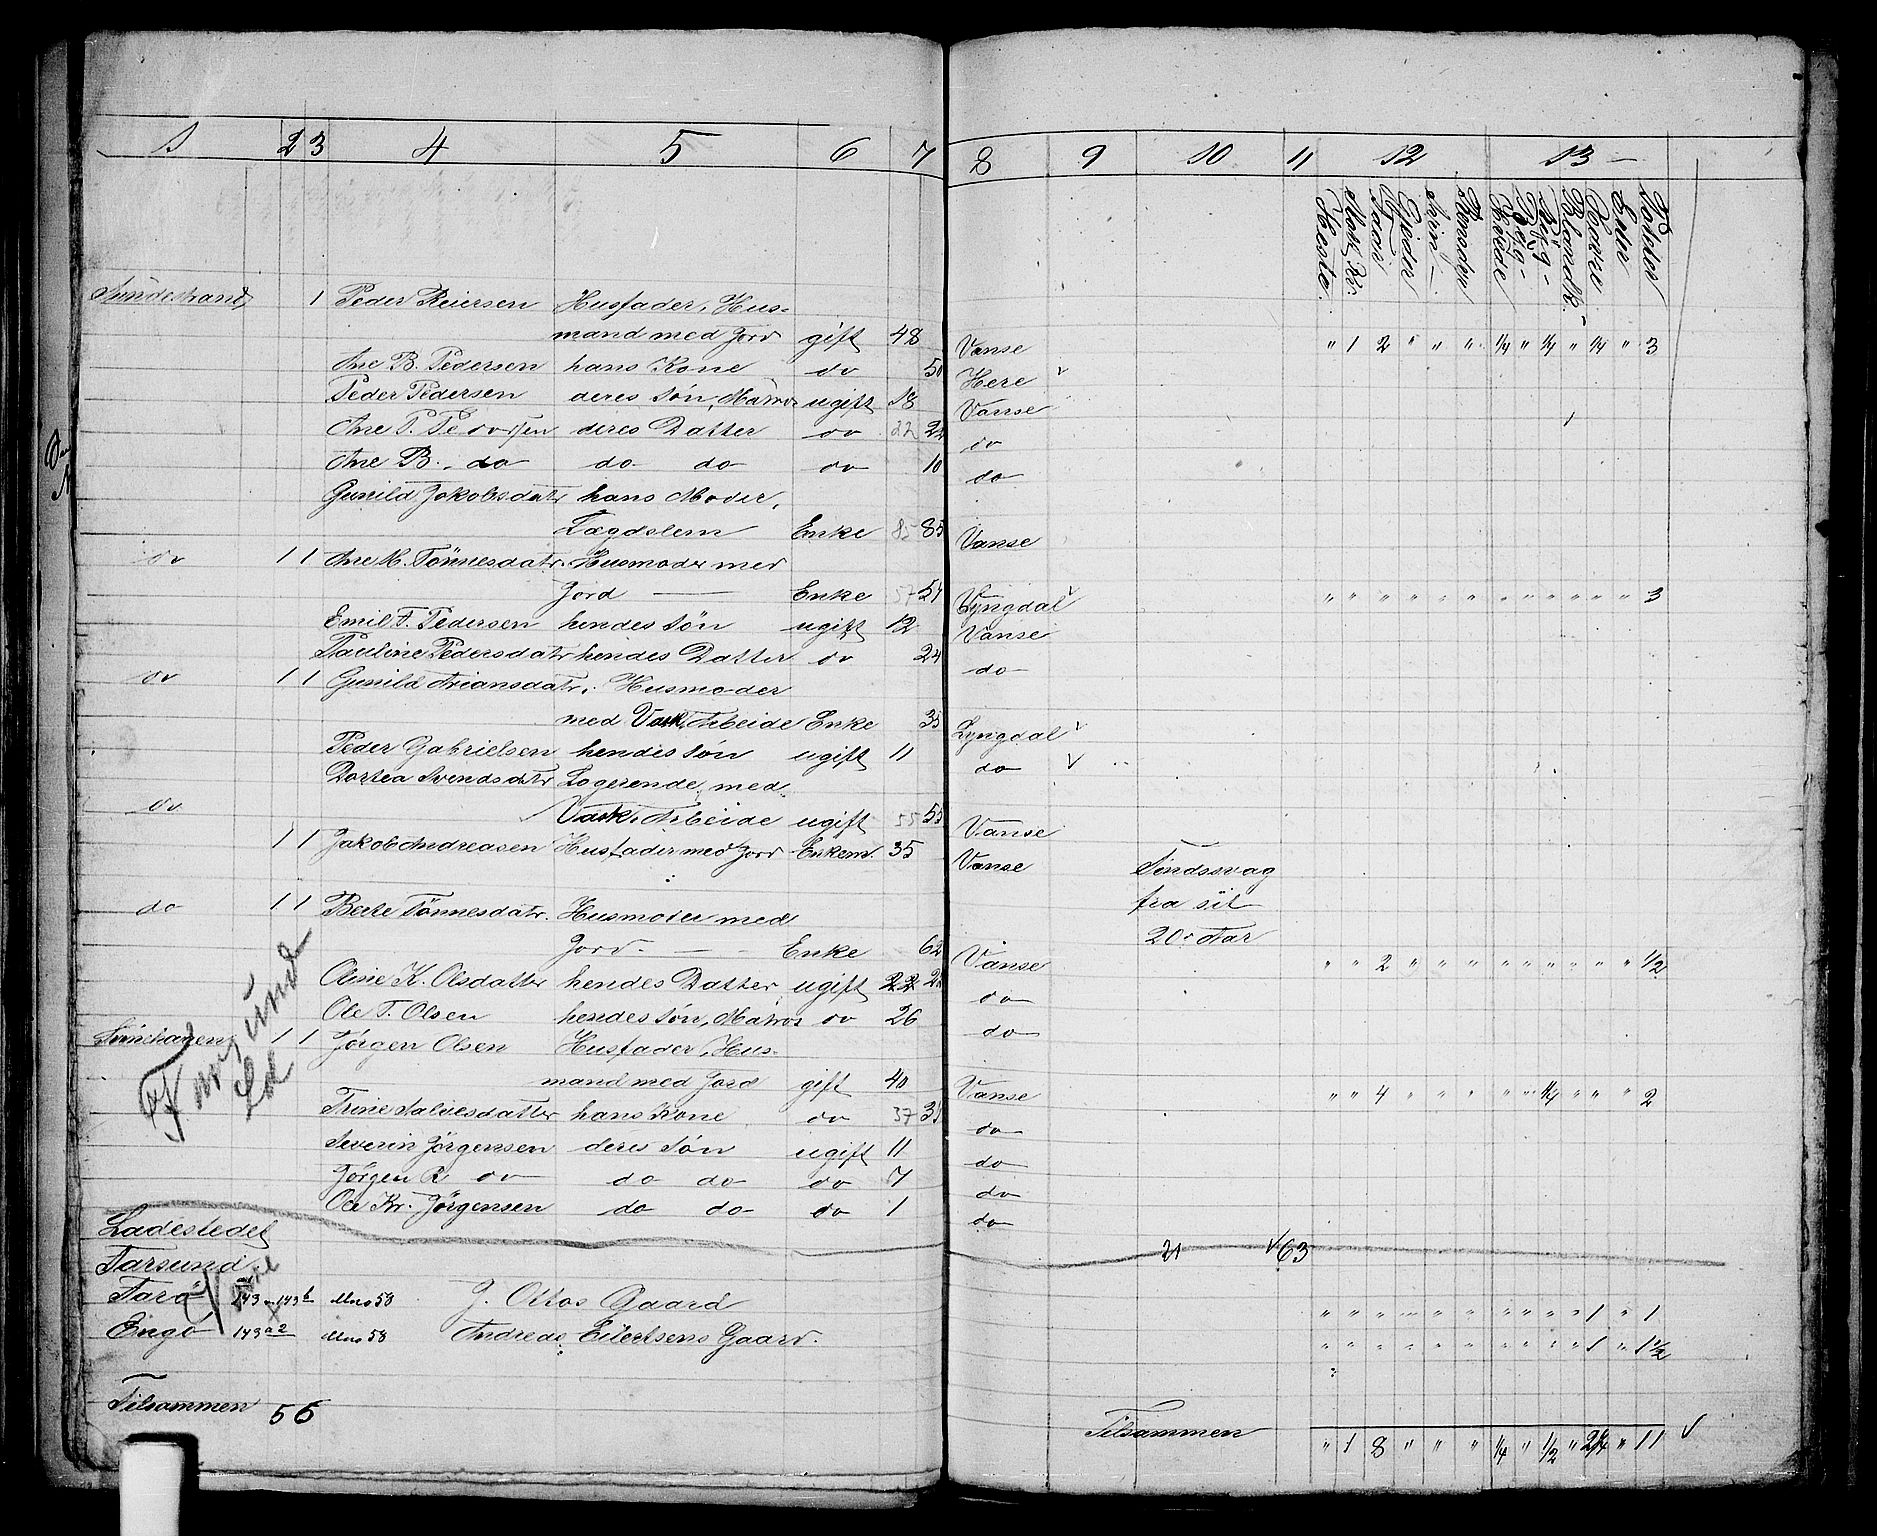 1 2 3 4 5 6 7 8 9 10 11 12 13
Heste Faar Gjeder Svin Rensdyr Hvede Byg Blandk. Havre Erter Potetes
Sundestrand 1 Peder Reiersen Husfader, Hus-
mand med Jord gift 48 Vanse " 1 2 " " " 1/4 " 1/4 " 1/4 " 3
Ane B. Pedersen hans Kone do 50 Here
Peder Pedersen deres Søn, Matros ugift 18 Vanse
Ane P. Pedersen deres Datter do 22 22 do
Ane B. do do do do 10 do
Gunild Jakobsdatr hans Moder,
Lægdslem Enke 85 85 Vanse
do 1 1 Ane M. Tönnesdatr. Husmoder med
Jord — Enke 57 57 Lyngdal " " " " " " " " " " " " 3
Emil T. Pedersen hendes Søn ugift 12 Vanse
Pauline Pedersdatr hendes Datter do 24 do
do 1 1 Gunild Ariansdatr. Husmoder
med Vask, Arbeide Enke 35 Lyngdal
Peder Gabrielsen hendes Søn ugift 11 do
Dortea Svendsdatr Logerende, med
do Vask. Arbeide ugift 55 55 Vanse
1 1 Jakob Andreasen Husfader med Jord Enkem. 35 Vanse Sindssvag
fra sit
20. Aar
do 1 1 Berte Tönnesdatr. Husmoder med
Jord. — Enke 62 Vanse " " 2 " " " " " " " " " 1/2
Oline K. Olsdatter hendes Datter ugift 22 22 do
Ole T. Olsen hendes Søn, Matros do 26 do
1 1 Jørgen Olsen Husfader, Hus-
mand med Jord gift 40 Vanse " " 4 " " " " " 1/4 " " " 2
Trine Salvesdatter hans Kone do 37 37 do
Severin Jørgensen deres Søn ugift 11 do
Jørgen R do do do do 7 do
Ole Kr. Jørgensen do do do 1 do
Farsund
Ld
21 63
Ladestedet
Farsund.
Farø 143 143 b Mno 58 J. Ottos Gaard " " " " " " " " " " 1 " 1
Engø 143 a 2 Mno 58 Andreas Eilertsens Gaard. " " " " " " " " " " 1 " 1 1/2
Tilsammen 56
Tilsammen " 1 8 " " " 1/4 " 1/2 " 2 1/4 " 11